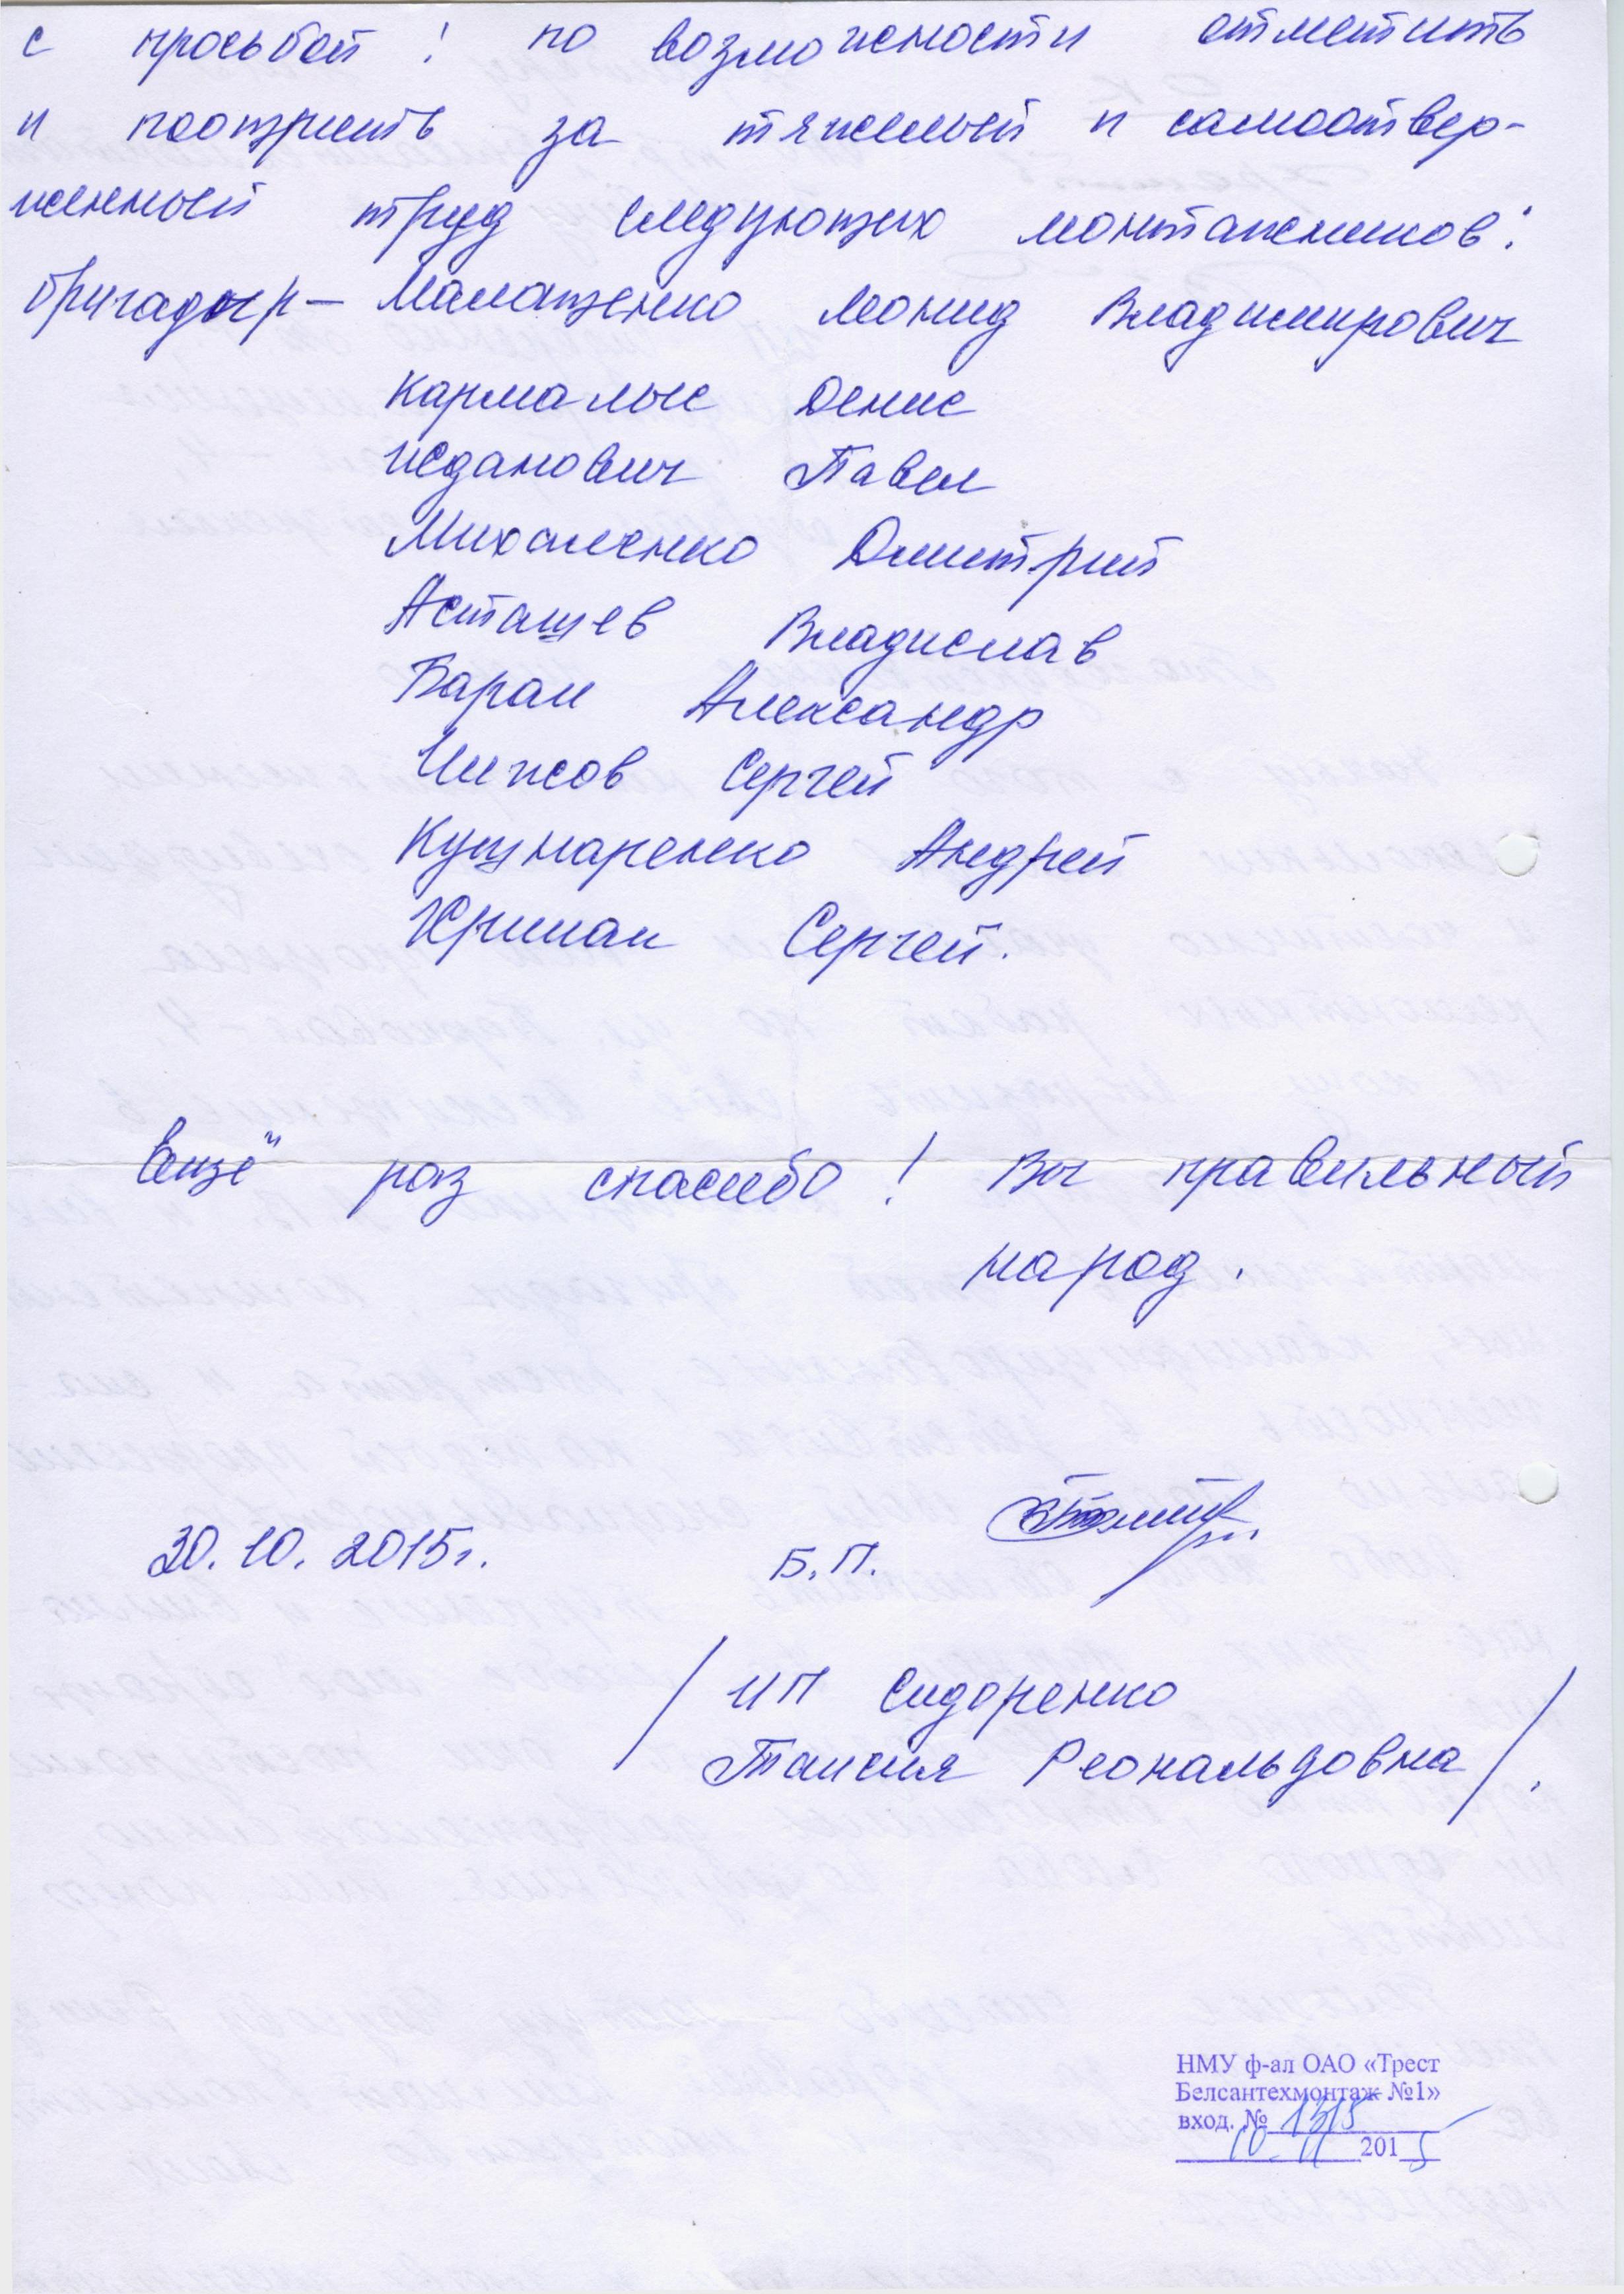 с просьбой! по возможности отметить
и поощрить за тяжелый и самоотвер-
женный труд следующих монтажников:
бригадир — Малащенко Леонид Владимирович
Кармалыс Денис
Жданович Павел
Михаленко Дмитрий
Асташев Владислав
Баран Александр
Чижов Сергей
Кушнаренко Андрей
Криман Сергей.
Ещё раз спасибо! Вы правильный
народ.
30.10.2015г.
Б.П.
/ ИП Сидоренко
Таисия Реональдовна /.
НМУ ф-ал ОАО «Трест
Белсантехмонтаж №1»
вход. № 1315
10 11 2015